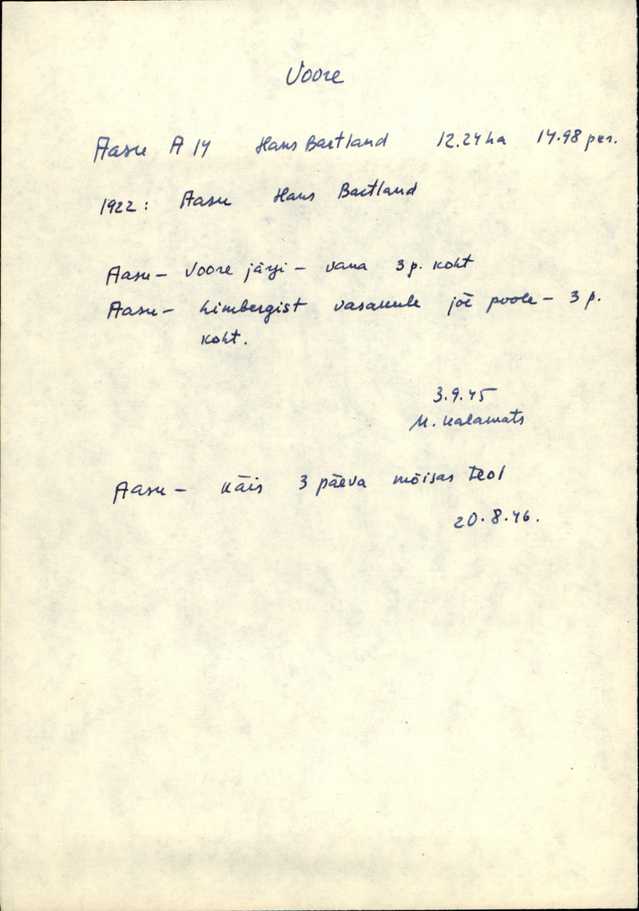 Voore
Aasu A 14 Hans Bartland 12.24 ha 14.98 per.
1922: Aasu Hans Bartland
Aasu - Voore järgi - vana 3 p. koht
Aasu - Limbergist vasakule jõe poole - 3 p.
koht.
3.9.45
M. Kalamats
Aasu - käis 3 päeva mõisas teol
20.8.46.